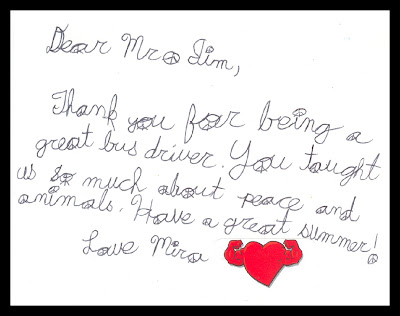 Dear Mr. Jim,
Thank you for being a
great bus driver. You taught
us so much about peace and
animals. Have a great summer!
Love Mira